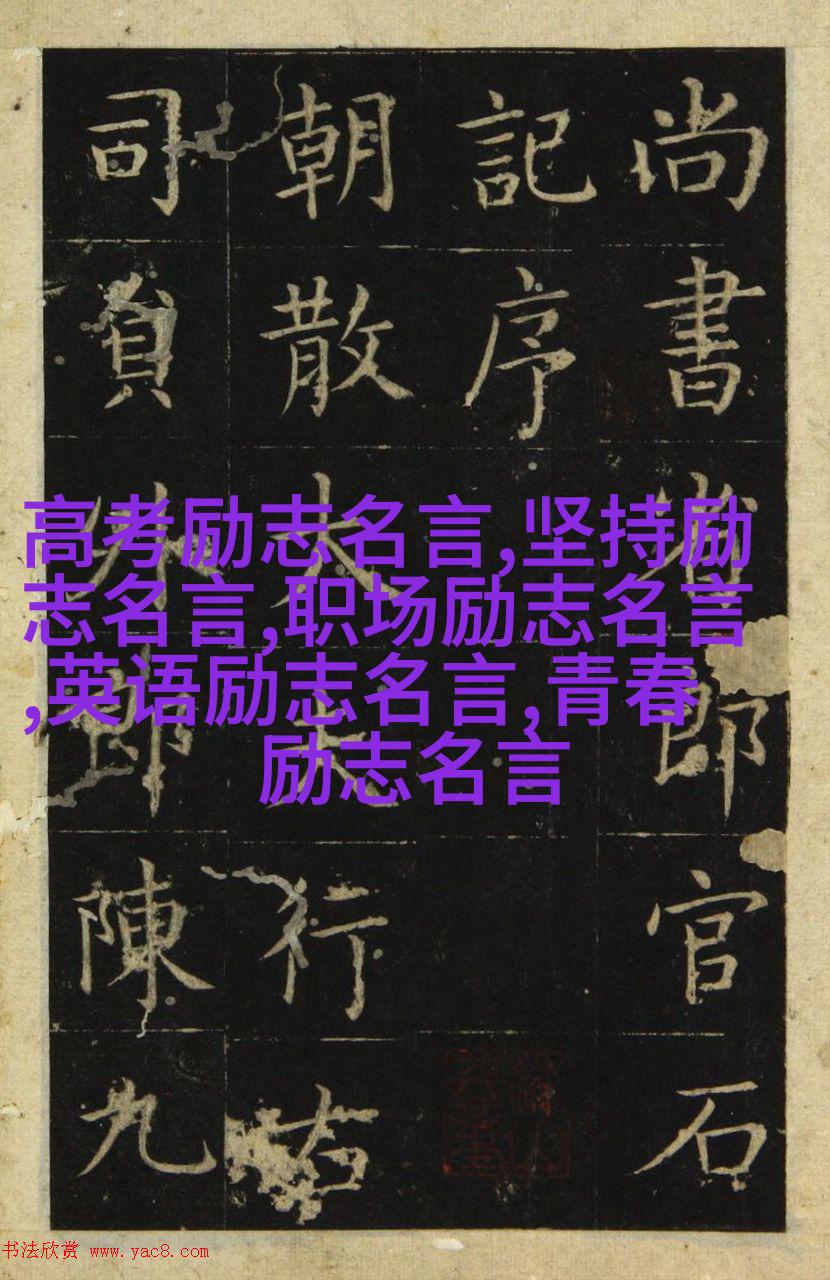 尚書省郎官石
記序
朝散大夫行右
司貟外郎陳九
高考励志名言,坚持励
志名言,职场励志名言
,英语励志名言,青春
励志名言
书法欣赏 www.yac8.com